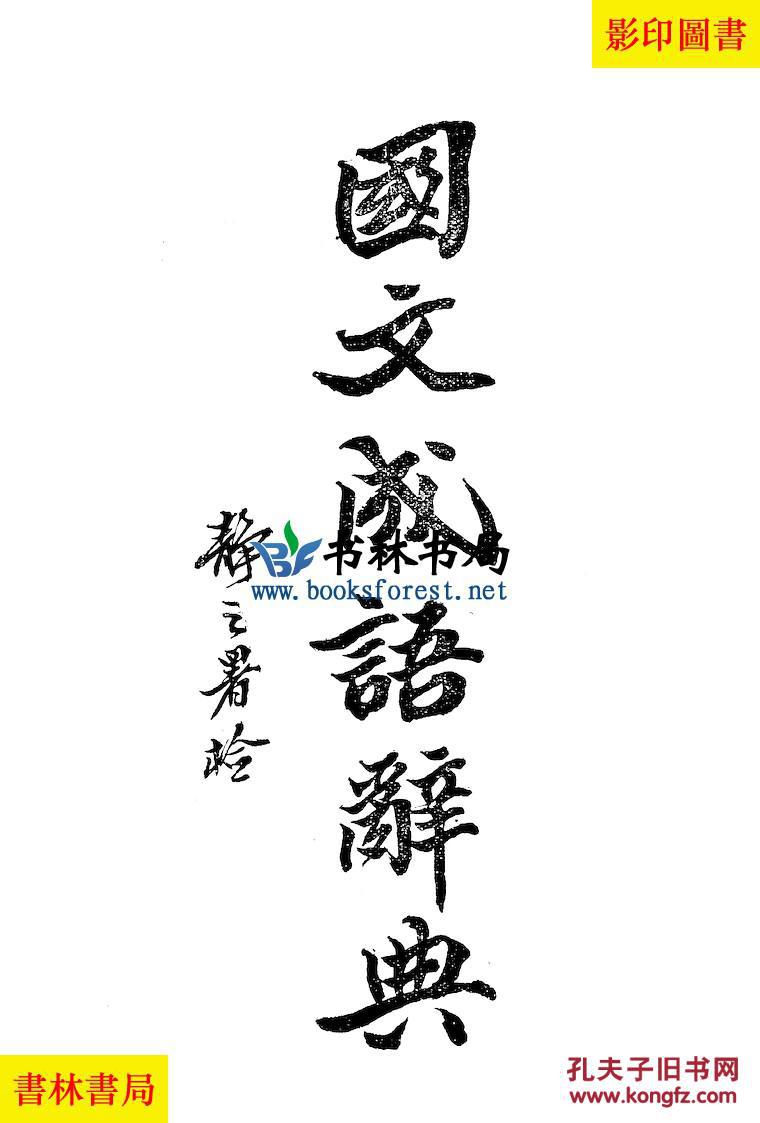 影印圖書
國文成語辭典
靜之署檢
书林书局
www.booksforest.net
書林書局
孔夫子旧书网
www.kongfz.com